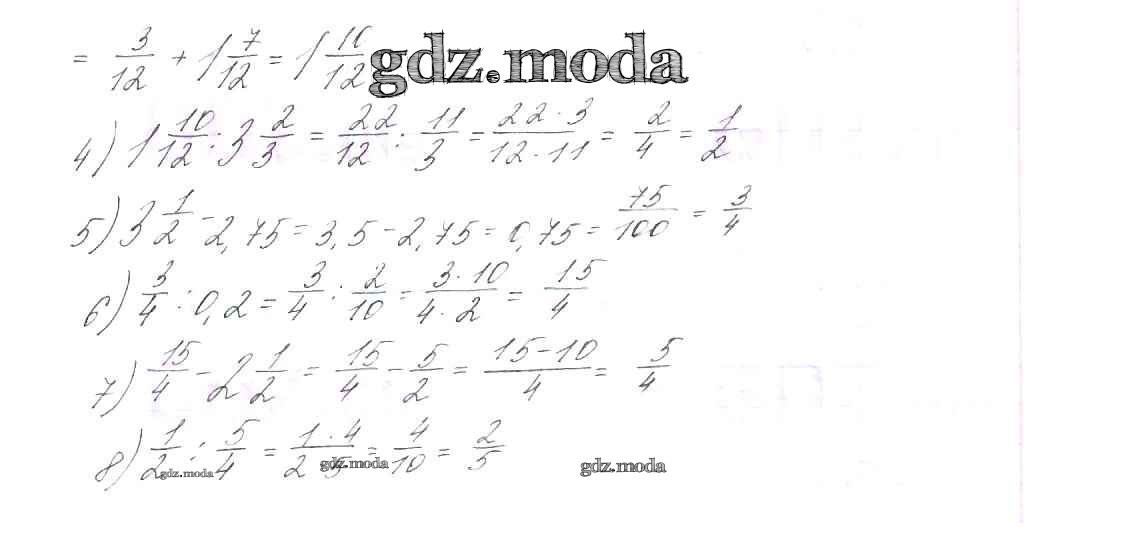 = 3/12 + 1 7/12 = 1 10/12 gdz.moda
4) 1 10/12 : 3 2/3 = 22/12 : 11/3 = 22 · 3/12 · 11 = 2/4 = 1/2
5) 3 1/2 - 2,75 = 3,5 - 2,75 = 0,75 = 75/100 = 3/4
6) 3/4 : 0,2 = 3/4 : 2/10 = 3 · 10/4 · 2 = 15/4
7) 15/4 - 2 1/2 = 15/4 - 5/2 = 15-10/4 = 5/4
8) 1/2 : 5/4 = 1 · 4/2 · 5 = 4/10 = 2/5
gdz.moda gdz.moda gdz.moda